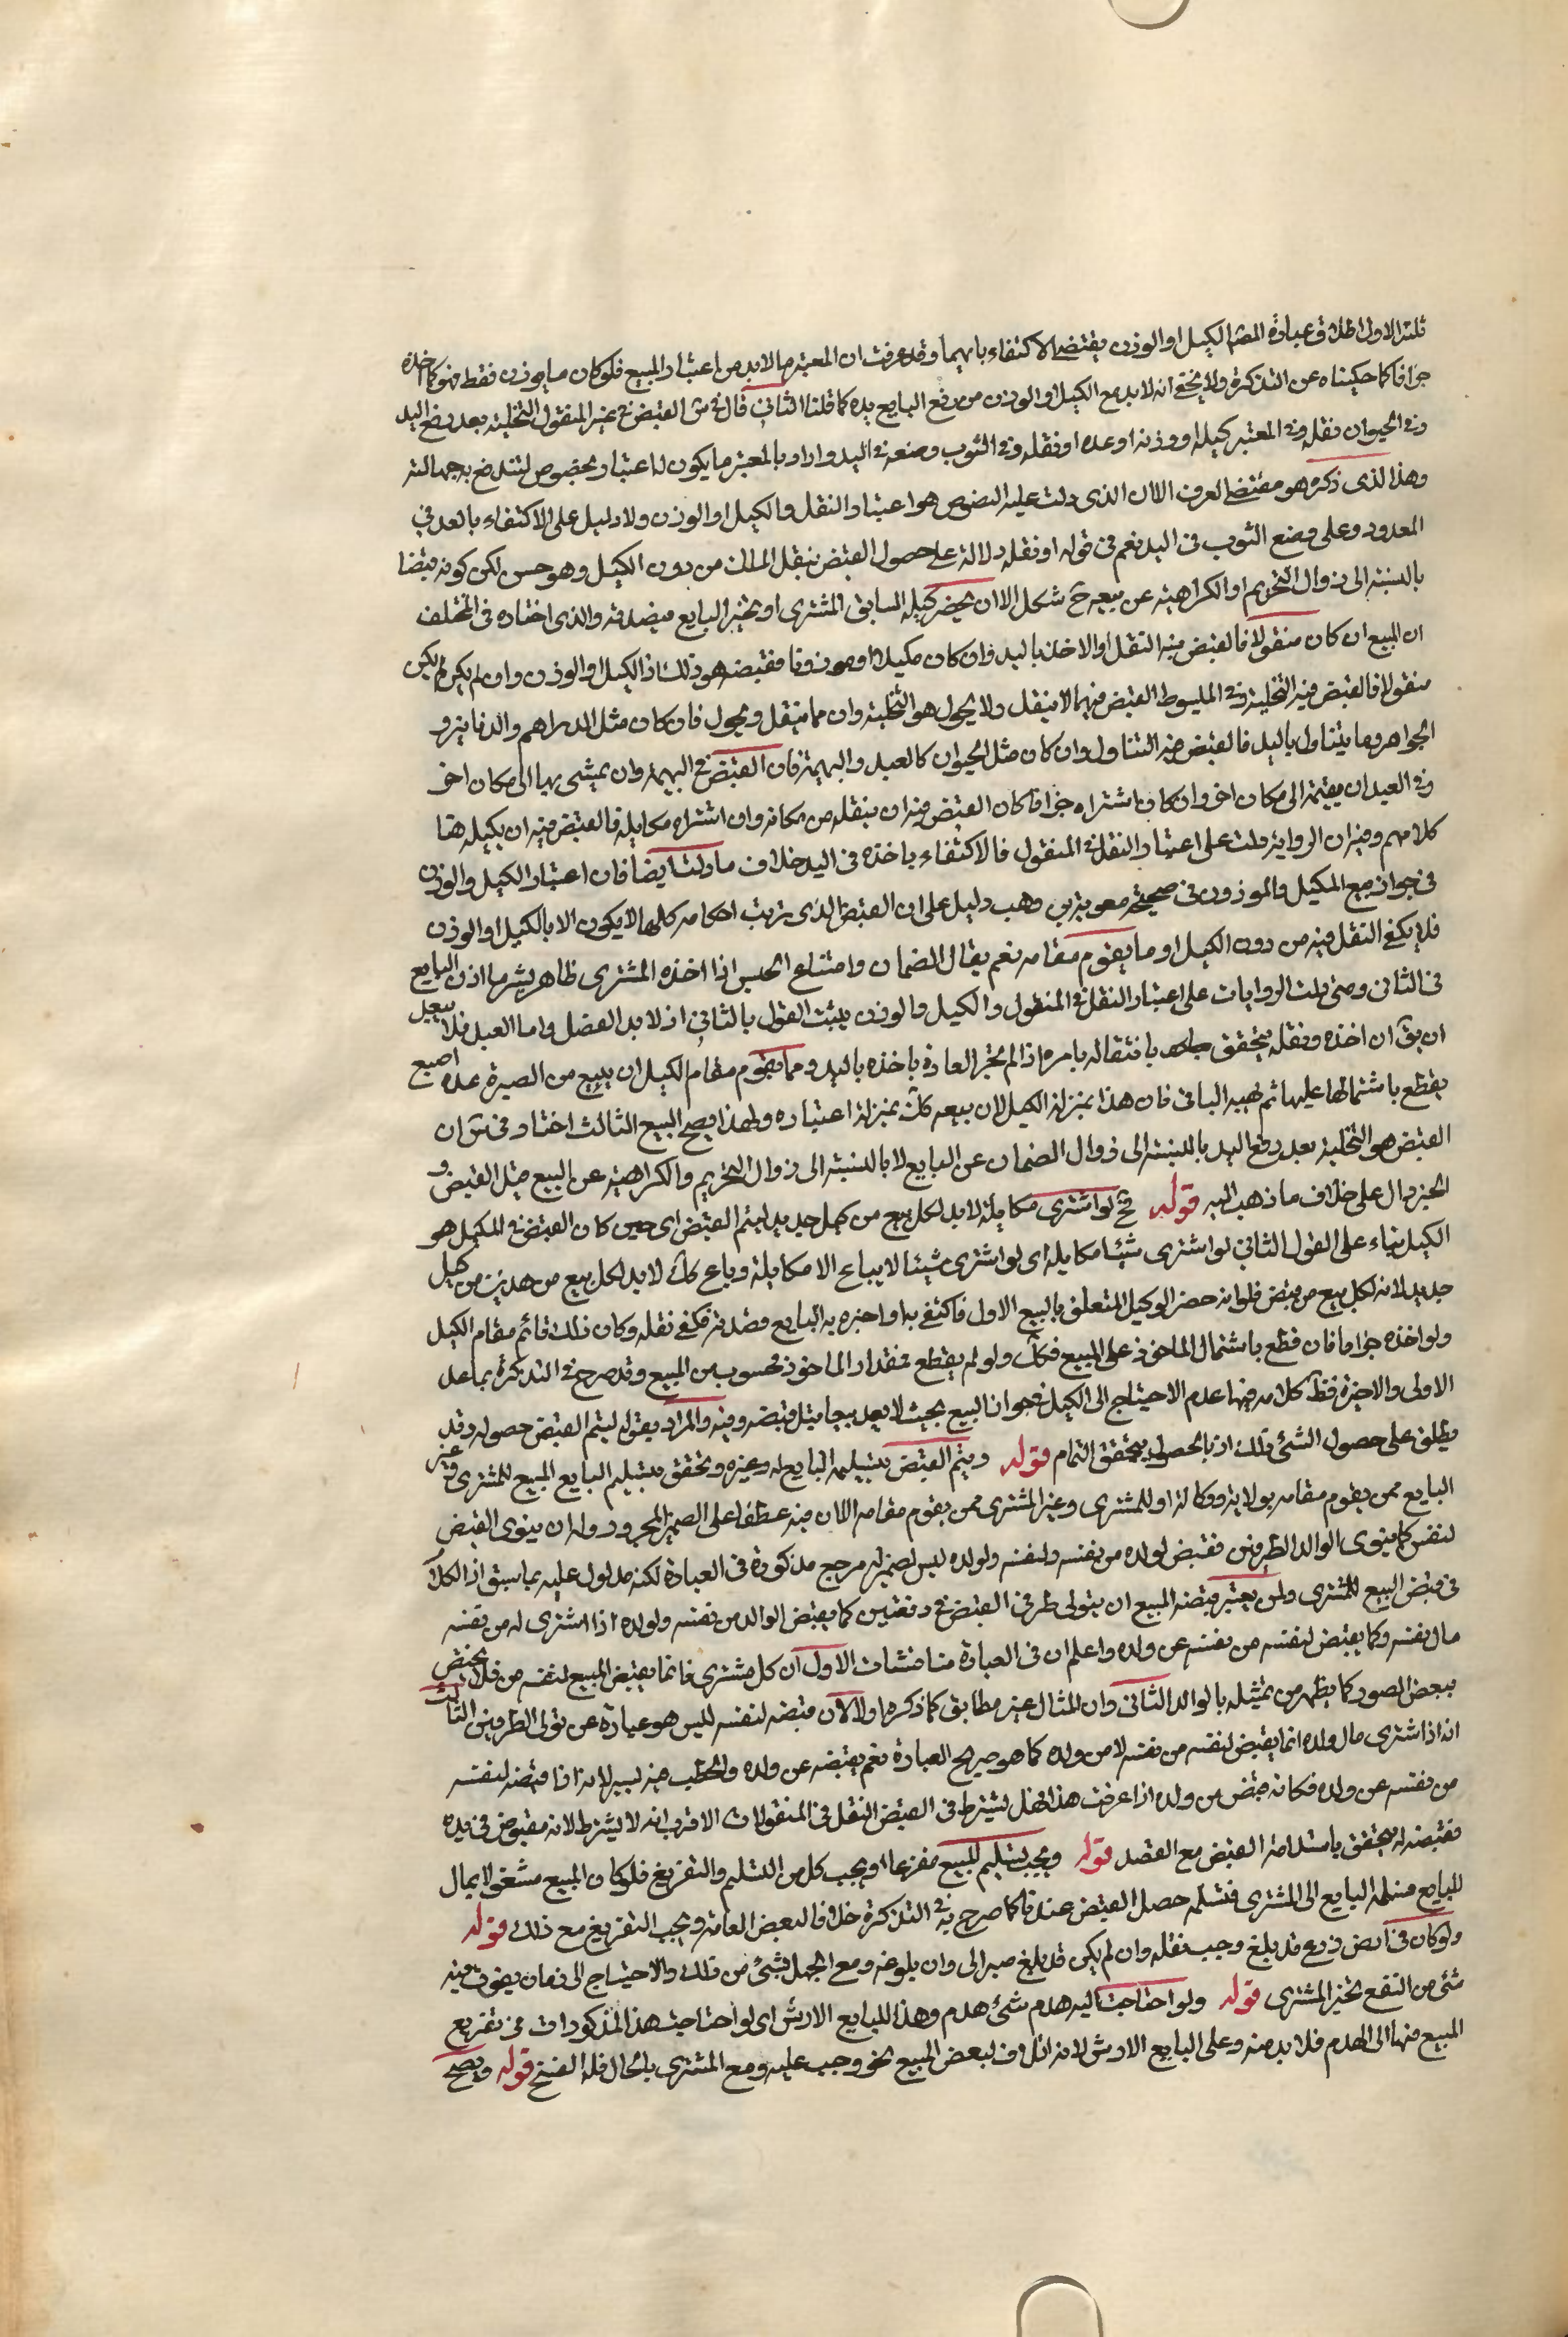 ثلثة الاول اطلاق عبارة المصم الكيل او الوزن يقتضى الاكتفاء بايهما وقد عرفت ان المعتبر ما لابد من اعتبار المبيع فلو كان مما يوزن فقط فهو كما اخذه
جزافا كما حكيناه عن التذكرة ولا يخفى انه لا بد مع الكيل او الوزن من رفع البايع يده كما قلنا الثانى قال فى س القبض فى غير المنقول التخلية بعد رفع اليد
وفى الحيوان نقله وفى المعتبر كيله او وزنه او عده او نقله وفى الثوب وضعه فى اليد واراد بالمعتبر ما يكون له اعتبار مخصوص لتندفع به جهالته
وهذا الذى ذكره هو مقتضى العرف الا ان الذى دلت عليه النصوص هو اعتبار النقل والكيل او الوزن ولا دليل على الاكتفاء بالعد فى
المعدود وعلى وضع الثوب فى اليد نعم فى قوله او نقله دلالة على حصول القبض بنقل المال من دون الكيل وهو حسن لكن كونه قبضا
بالنسبة الى زوال التحريم او الكراهية عن بيعه ح شكل الا ان يحضر كيله السابق المشترى او يخبر البايع فيصدقه والذى اختاره فى المختلف
ان المبيع ان كان منقولا فالقبض فيه النقل او الاخذ باليد وان كان مكيلا او موزونا فقبضه هو ذلك او الكيل او الوزن وان لم يكن
منقولا فالقبض فيه التخلية وفى المبسوط القبض فيما لا ينقل ولا يحول هو التخلية وان مما ينقل ويحول فان كان مثل الدراهم والدنانير و
الجواهر وما يتناول باليد فالقبض فيه التناول وان كان مثل الحيوان كالعبد والبهيمة فان القبض فى البهيمة وان يمشى بها الى مكان اخر
وفى العبد ان يقيمه الى مكان اخر وان كان اشتراه جزافا كان القبض فيه ان ينقله من مكانه وان اشتراه مكايلة فالقبض فيه ان يكيله هذا
كلامهم وفيه ان الرواية دلت على اعتبار النقل فى المنقول فالاكتفاء باخذه فى اليد خلاف ما دلت ايضا فان اعتبار الكيل والوزن
فى جواز بيع المكيل والموزون فى صحيحة معوية بن وهب دليل على ان القبض الذى ترتب احكامه كلها لا يكون الا بالكيل او الوزن
فلا يكفى النقل فيه من دون الكيل او ما يقوم مقامه نعم يقال الضمان وامتناع الحبس اذا اخذه المشترى ظاهر بشرط اذن البايع
فى الثانى ومتى دلت الروايات على اعتبار النقل فى المنقول والكيل والوزن يثبت القول بالثانى اذ لابد الفصل واما العبد فلا يبعد
ان يق ان اخذه ونقله يتحقق بانتقاله بامره اذ لم تجر العادة باخذه باليد ومما يقوم مقام الكيل ان يبيع من الصبرة عدة اصيع
يقطع باشتمالها عليها ثم يهبه الباقى فان هذا بمنزلة الكيل لان بيعه كك بمنزلة اعتباره ولهذا يصح البيع الثالث اختار فى س ان
القبض هو التخلية بعد رفع اليد بالنسبة الى زوال الضمان عن البايع لا بالنسبة الى زوال التحريم والكراهية عن البيع قبل القبض و
الخبر دال على خلاف ما ذهب اليه قوله فح لو اشترى مكايلة لابد لكل بيع من كيل جديد ليتم القبض اى حين كان القبض فى المكيل هو
الكيل بناء على القول الثانى لو اشترى شيئا مكايلة اى لو اشترى شيئا لا يباع الا مكايلة وباع كك لابد لكل بيع من هذين من كيل
جديد لانه لكل بيع من قبض فلو انه حضر الوكيل المتعلق بالبيع الاول فاكتفى به او اخبره به البايع فصدقه فكفى نقله وكان ذلك قائم مقام الكيل
ولو اخذه جزافا فان قطع باشتمال الماخوذ على المبيع فكك ولو لم يقطع فمقدار الماخوذ محسوب من المبيع وقد صرح فى التذكرة بما عدا
الاولى والاخيرة فظ كلامه فيها عدم الاحتياج الى الكيل فى جواز البيع بحيث لا يعد بيعا قبل قبضه وفيه والمراد بقوله ليتم القبض حصوله وقد
يطلق على حصول الشئ ذلك اذ بالحصول يتحقق التمام قوله ويتم القبض بتسليم البايع له وغيره ويتحقق بتسليم البايع المبيع للمشترى وغير
البايع ممن يقوم مقامه بولاية او وكالة او للمشترى وغير المشترى ممن يقوم مقامه الا ان فيه عطفا على الضمير المجرور وله ان يتولى القبض
لنفس كما يتولى الوالد الطرفين فقبض لولده من نفسه ولنفسه ولولده ليس لضمير له مرجع مذكورة فى العبارة لكنه مدلول عليه بما سبق اذ الكلام
فى قبض البيع للمشترى ولمن يعتبر قبضه المبيع ان يتولى طرفى القبض فى دفعتين كما يقبض الوالد من نفسه ولولده اذا اشترى له من نفسه
مال نفسه وكما يقبض لنفسه من نفسه عن ولده واعلم ان فى العبارة مناقشات الاول ان كل مشترى فانما يقبض المبيع لنفسه من فلا يختص
ببعض الصور كما يظهر من تمثيله بالوالد الثانى وان المثال غير مطابق كما ذكره اولا لان قبضه لنفسه ليس هو عبارة عن تولى الطرفين الثالث
انه اذا اشترى مال ولده انما يقبض لنفسه من نفسه لا من ولده كما هو صريح العبارة نعم يقبضه عن ولده والخطب فيه يسير لانه اذا قبضه لنفسه
من نفسه عن ولده فكانه قبض من ولده اذا عرفت هذا فهل يشترط فى القبض النقل فى المنقولات الاقرب انه لا يشترط لانه مقبوض فى يده
فقبضه له يتحقق باستدامة القبض مع القصد قوله ويجب تسليم المبيع مفرغا اى ويجب كل من التسليم والتفريغ فلو كان المبيع مشغولا بمال
للبايع فسلمه البايع الى المشترى فتسلمه حصل القبض عندنا كما صرح به فى التذكرة خلافا لبعض العامة ويجب التفريغ مع ذلك قوله
ولو كان فى ارض زرع قد بلغ وجب نقله وان لم يكن قد بلغ صبر الى وان بلوغه ومع الجهل بشئ من ذلك والاحتياج الى زمان يفوت فيه
شئ من النفع تخير المشترى قوله ولو احتاجت اليه هدم شئ هدم وهذا للبايع الارش اى لو احتاجت هذا المذكورات فى تفريغ
المبيع منها الى الهدم فلا بد منه وعلى البايع الارش لانه اتلاف لبعض المبيع نحو وجب عليه ومع المشترى بالحال فله الفسخ قوله ويصح